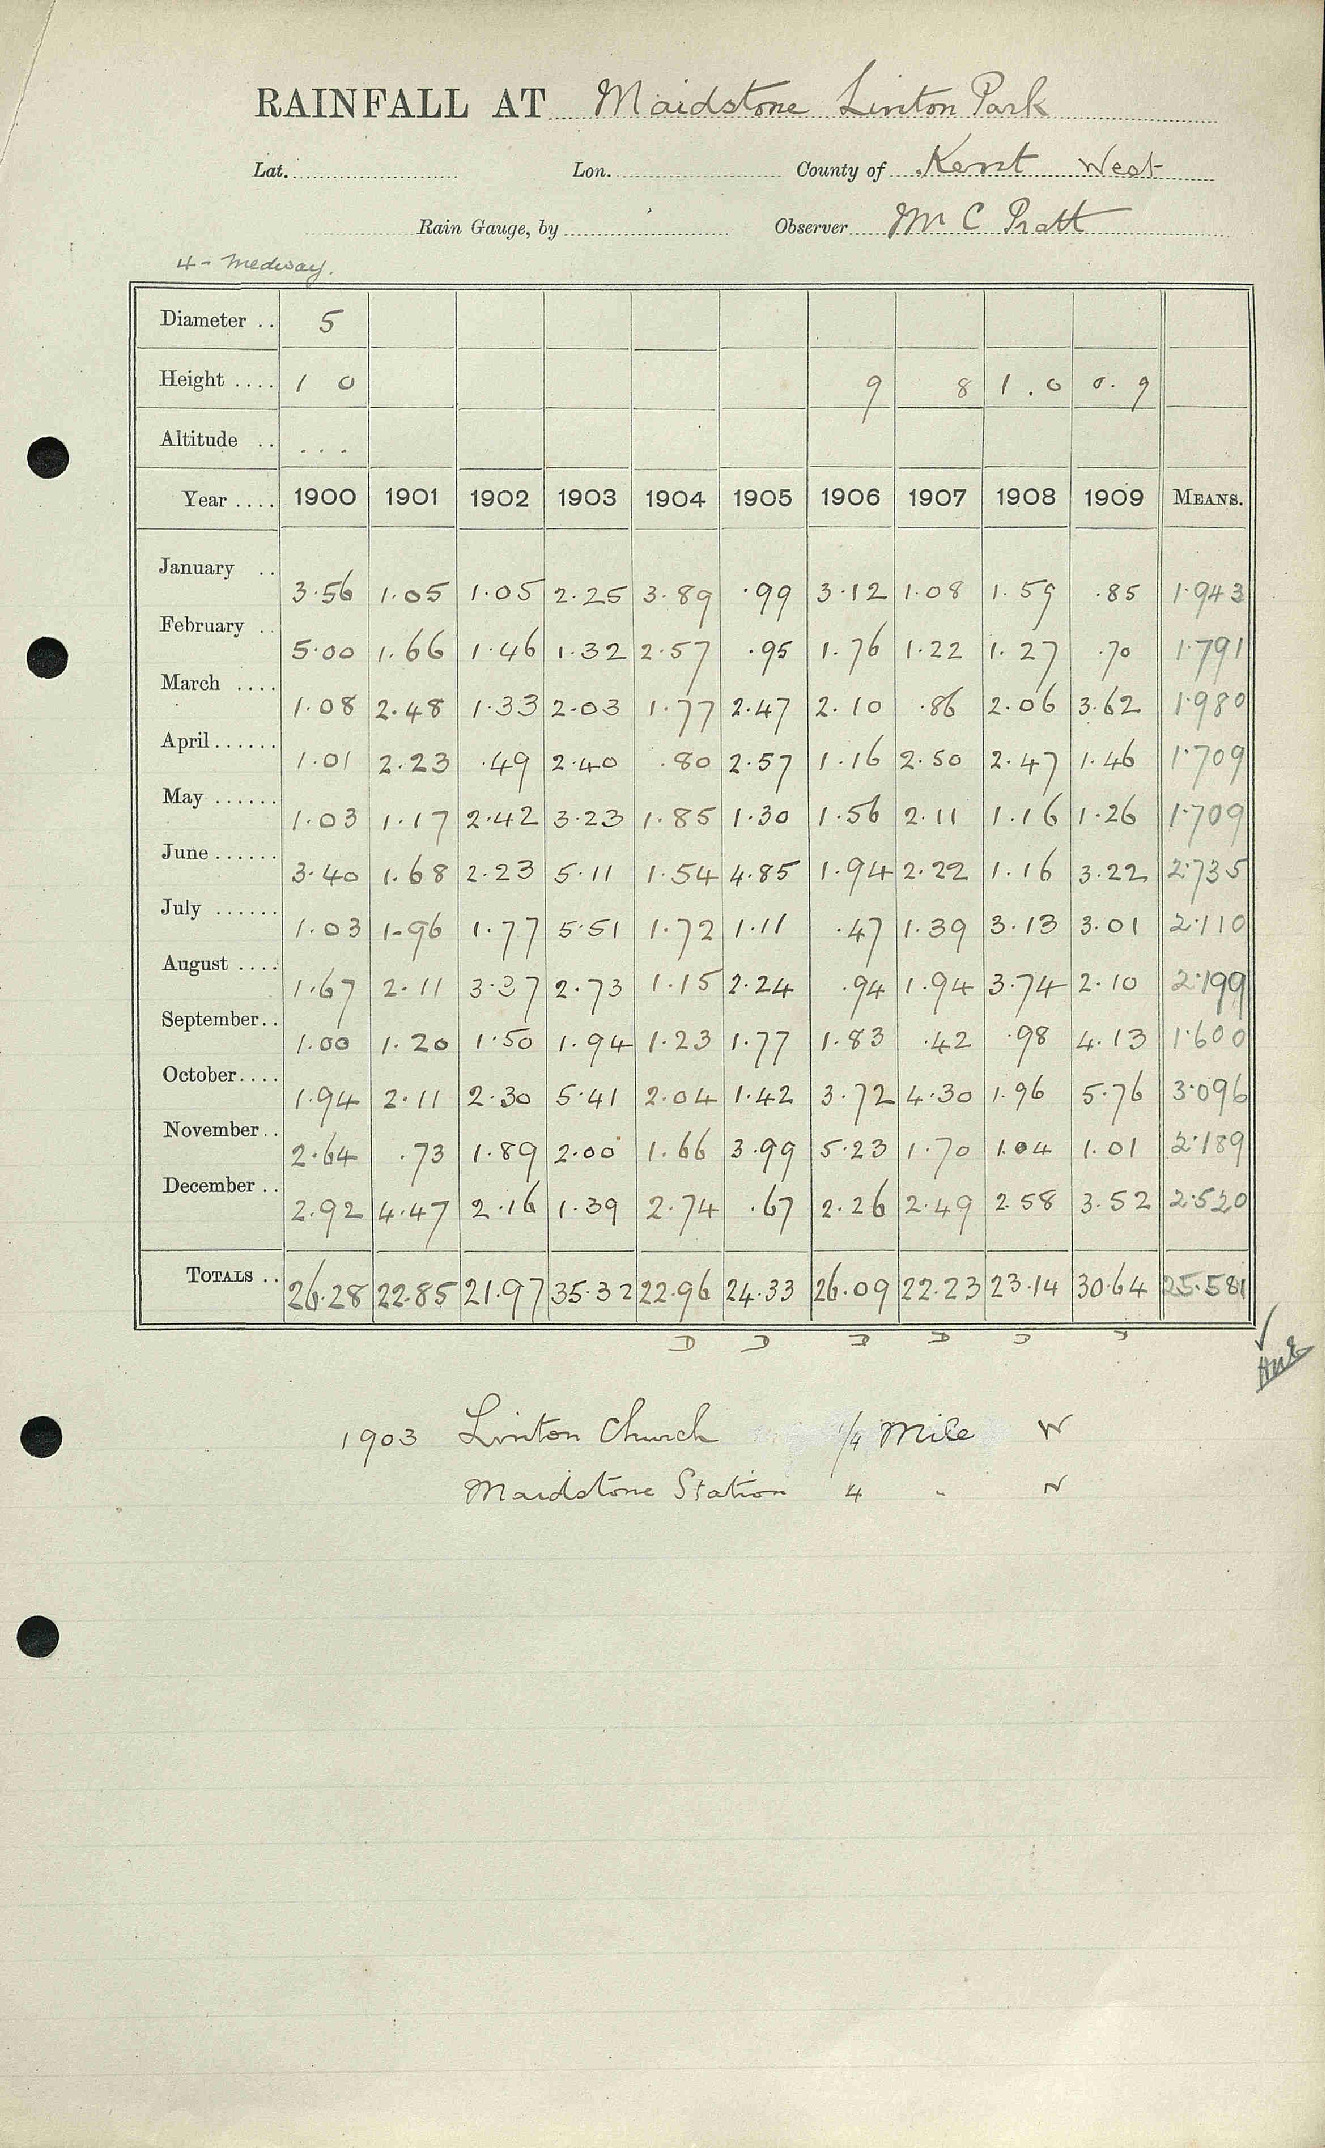 RAINFALL AT Maidstone Linton Park
Lat. Lon. County of Kent West
Rain Gauge, by Observer Mr C Pratt
4 - Medway.
Diameter .. 5
Height .... 1 0 9 8 1.0 0.9
Altitude .. ...
Year .... 1900 1901 1902 1903 1904 1905 1906 1907 1908 1909 MEANS.
January .. 3.56 1.05 1.05 2.25 3.89 .99 3.12 1.08 1.59 .85 1.943
February .. 5.00 1.66 1.46 1.32 2.57 .95 1.76 1.22 1.27 .70 1.791
March .... 1.08 2.48 1.33 2.03 1.77 2.47 2.10 .86 2.06 3.62 1.980
April...... 1.01 2.23 .49 2.40 .80 2.57 1.16 2.50 2.47 1.46 1.709
May ...... 1.03 1.17 2.42 3.23 1.85 1.30 1.56 2.11 1.16 1.26 1.709
June...... 3.40 1.68 2.23 5.11 1.54 4.85 1.94 2.22 1.16 3.22 2.735
July ...... 1.03 1.96 1.77 5.51 1.72 1.11 .47 1.39 3.13 3.01 2.110
August .... 1.67 2.11 3.37 2.73 1.15 2.24 .94 1.94 3.74 2.10 2.199
September.. 1.00 1.20 1.50 1.94 1.23 1.77 1.83 .42 .98 4.13 1.600
October.... 1.94 2.11 2.30 5.41 2.04 1.42 3.72 4.30 1.96 5.76 3.096
November.. 2.64 .73 1.89 2.00 1.66 3.99 5.23 1.70 1.04 1.01 2.189
December .. 2.92 4.47 2.16 1.39 2.74 .67 2.26 2.49 2.58 3.52 2.520
TOTALS .. 26.28 22.85 21.97 35.32 22.96 24.33 26.09 22.23 23.14 30.64 25.581
1903 Linton Church 1/4 Mile W
Maidstone Station 4 " N